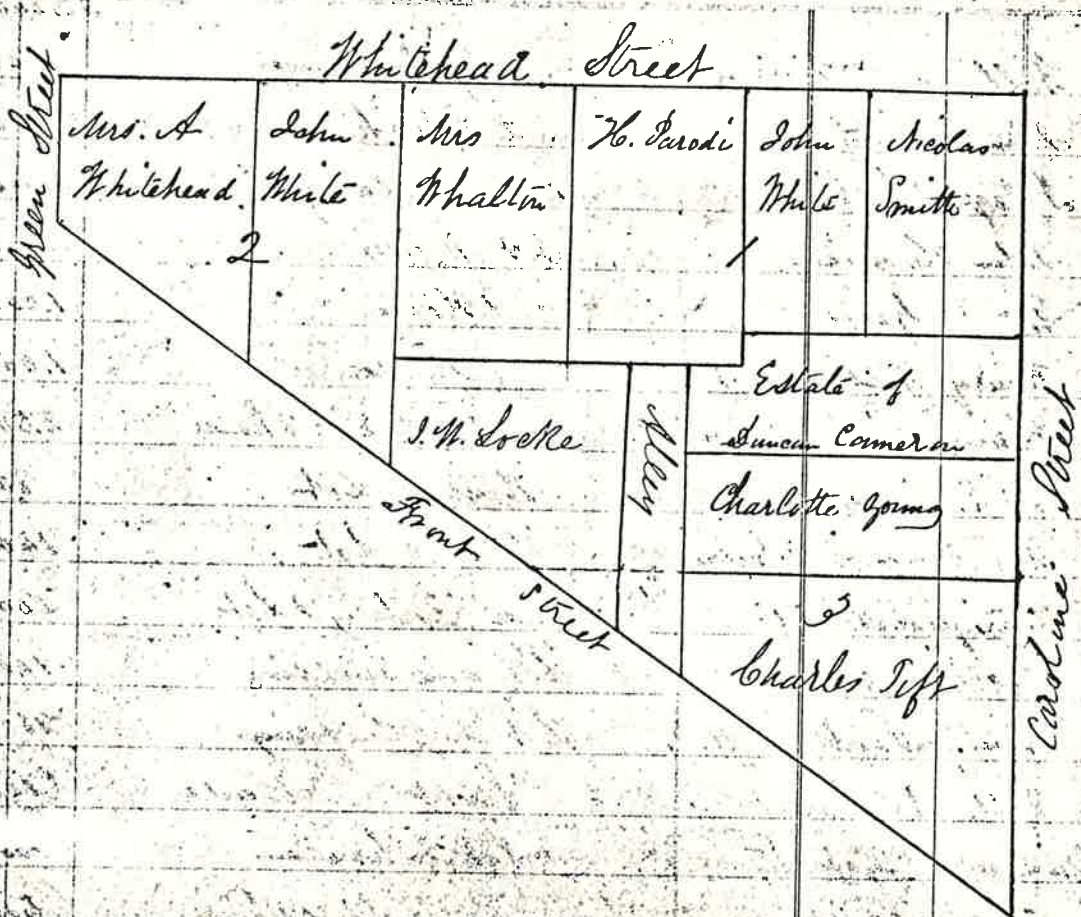 Whitehead Street
Green Street
Mrs. A
Whitehead.
2
John
White
Mrs
Whalton
H. Parodi
1
John
White
Nicolas
Smith
J. W. Locke
Alley
Estate of
Duncan Cameron
Charlotte Young
3
Charles Tift
Front Street
Caroline Street